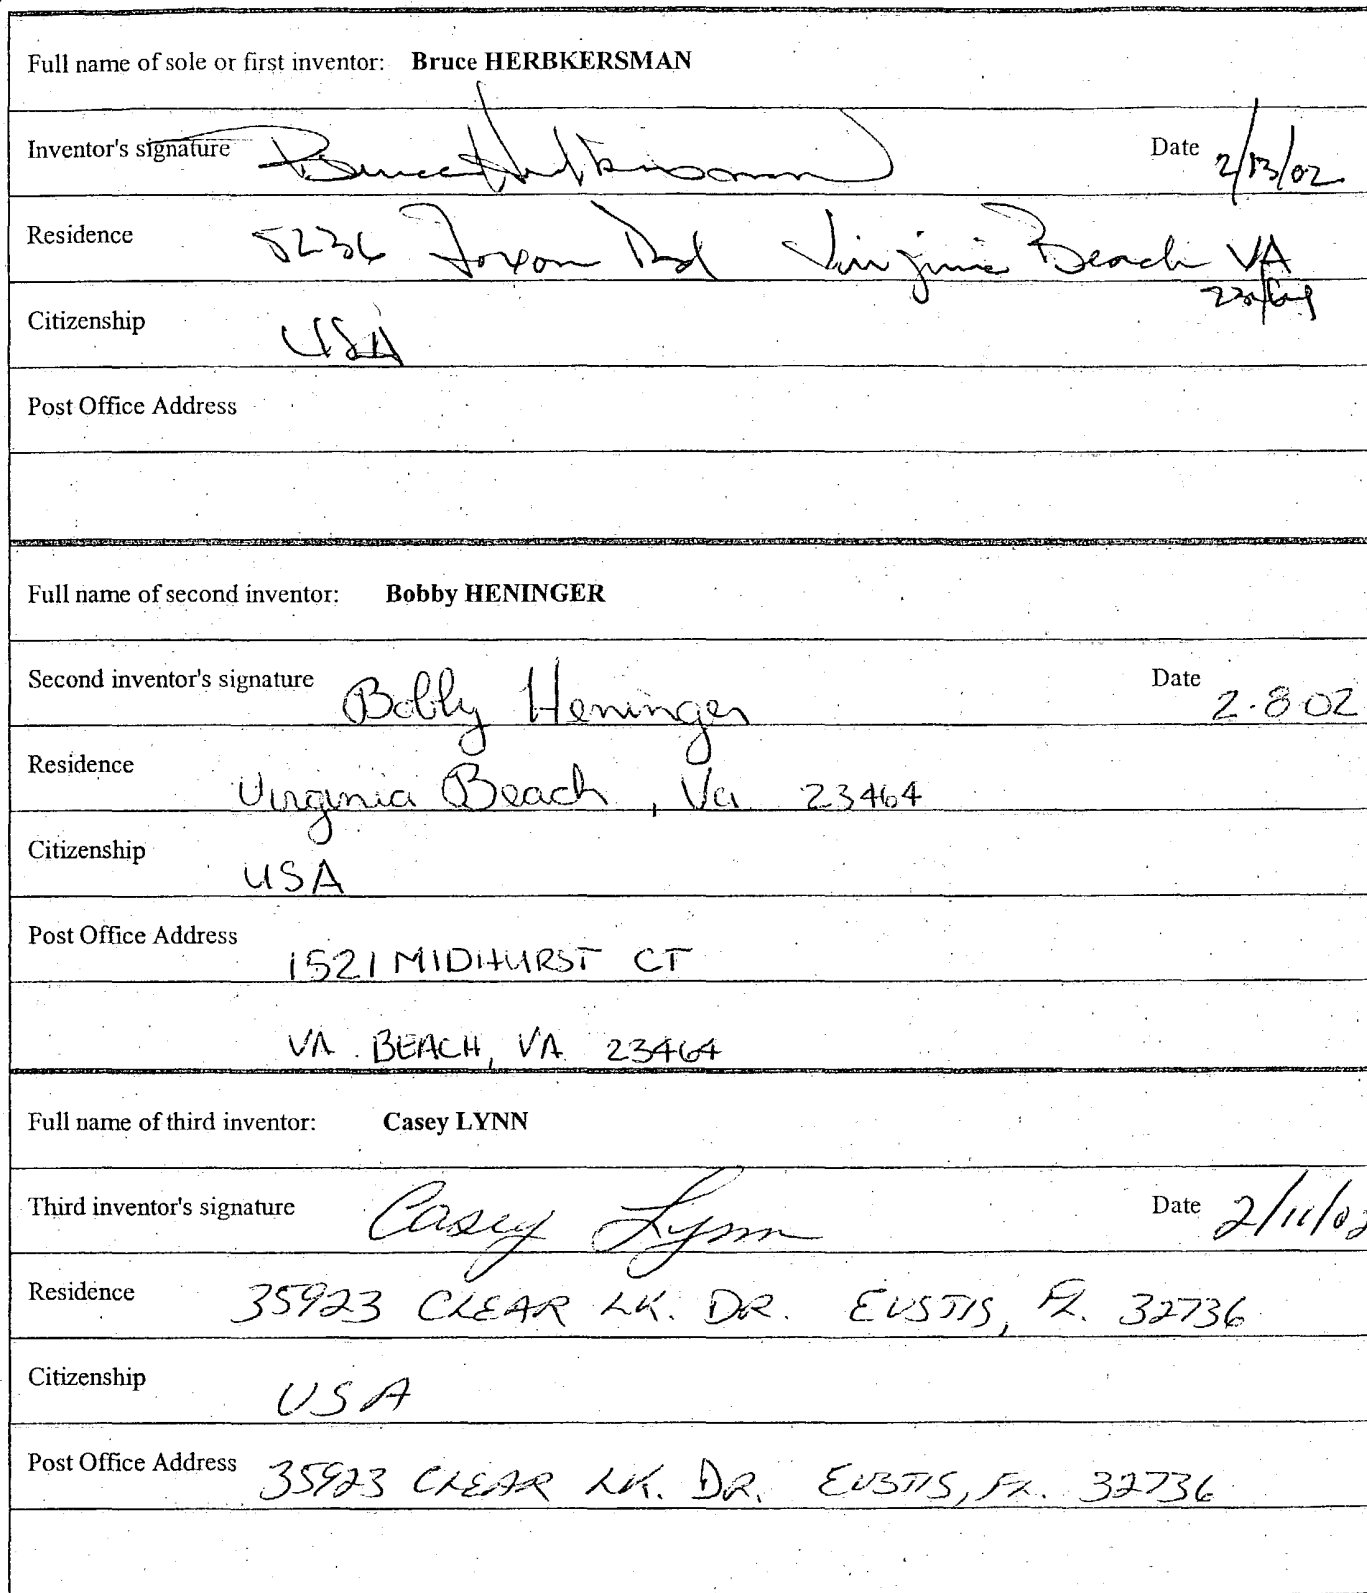 Full name of sole or first inventor: Bruce HERBKERSMAN
Inventor's signature Bruce Herbkersman Date 2/13/02
Residence 5236 Foxon Rd Virginia Beach VA
Citizenship USA
Post Office Address
Full name of second inventor: Bobby HENINGER
Second inventor's signature Bobby Heninger Date 2.8.02
Residence Virginia Beach, Va 23464
Citizenship USA
Post Office Address 1521 MIDHURST CT
VA. BEACH, VA 23464
Full name of third inventor: Casey LYNN
Third inventor's signature Casey Lynn Date 2/11/02
Residence 35923 CLEAR LK. DR. EUSTIS, FL. 32736
Citizenship USA
Post Office Address 35923 CLEAR LK. DR. EUSTIS, FL. 32736